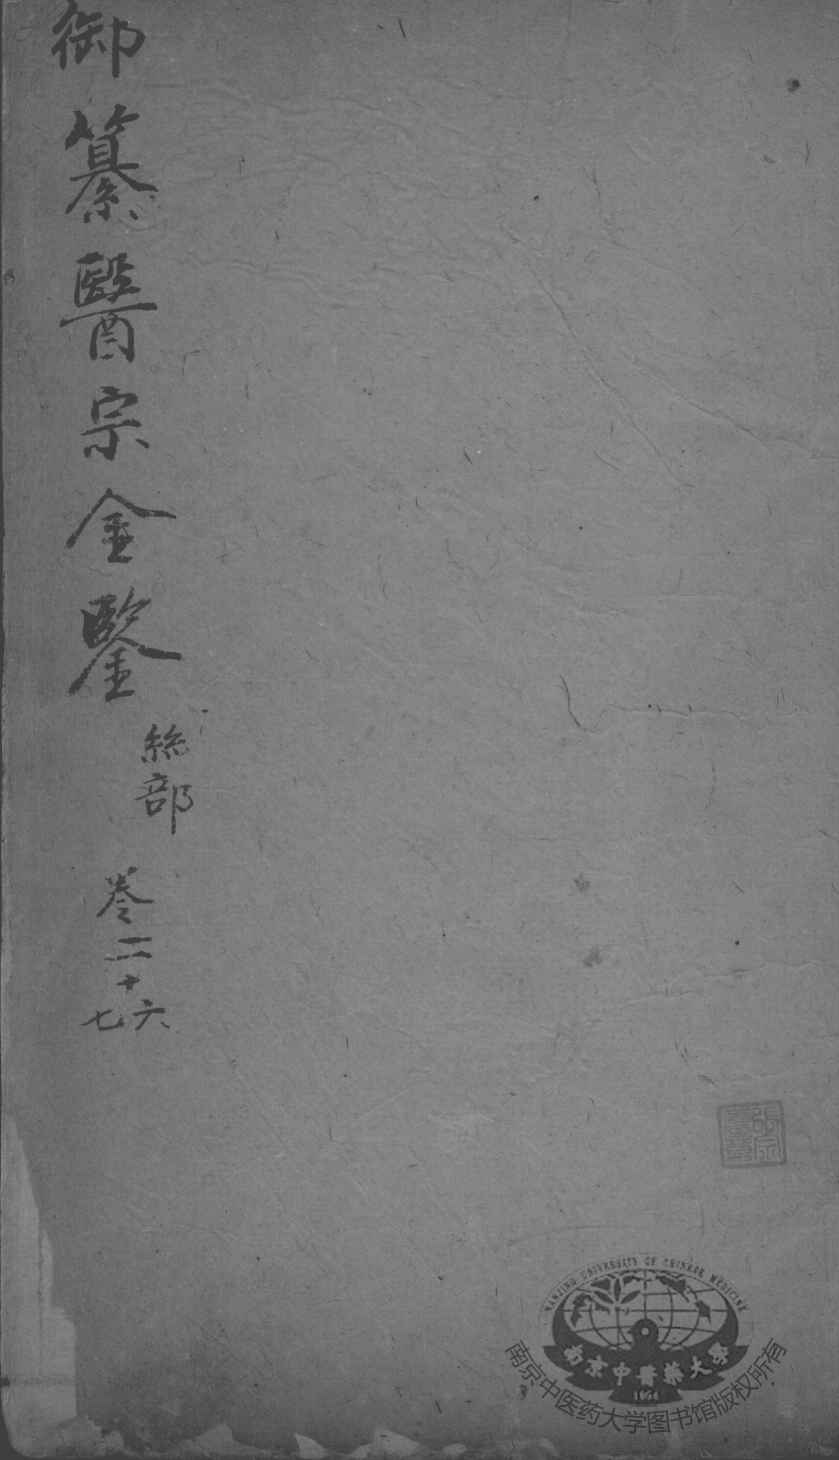 御纂醫宗金鑒
絲部
卷二十六
七
張宗
NANJING UNIVERSITY OF CHINESE MEDICINE
南京中醫藥大學
1954
南京中医药大学图书馆版权所有